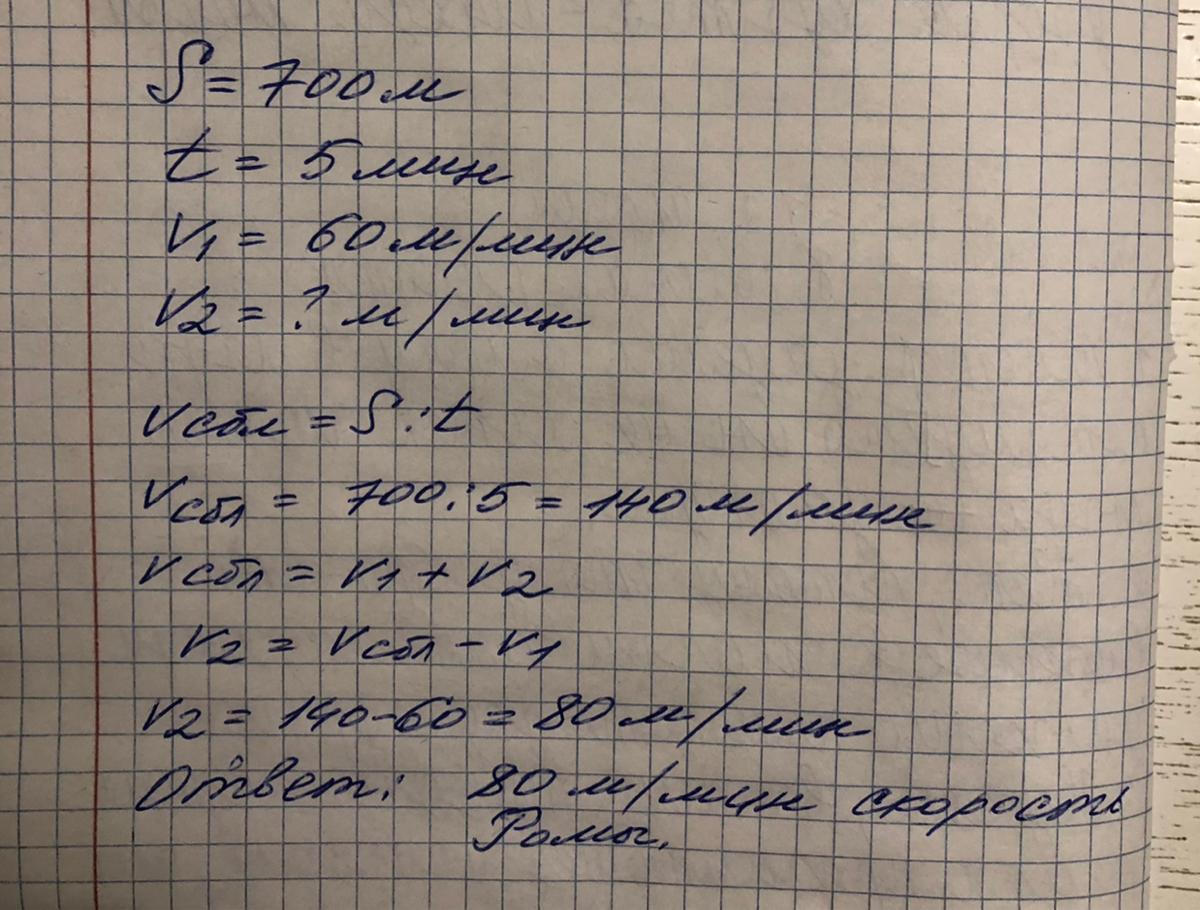 S = 700 м
t = 5 мин
V1 = 60 м/мин
V2 = ? м/мин
Vсбл = S : t
Vсбл = 700 : 5 = 140 м/мин
Vсбл = V1 + V2
V2 = Vсбл - V1
V2 = 140 - 60 = 80 м/мин
Ответ: 80 м/мин скорость
Ромы.